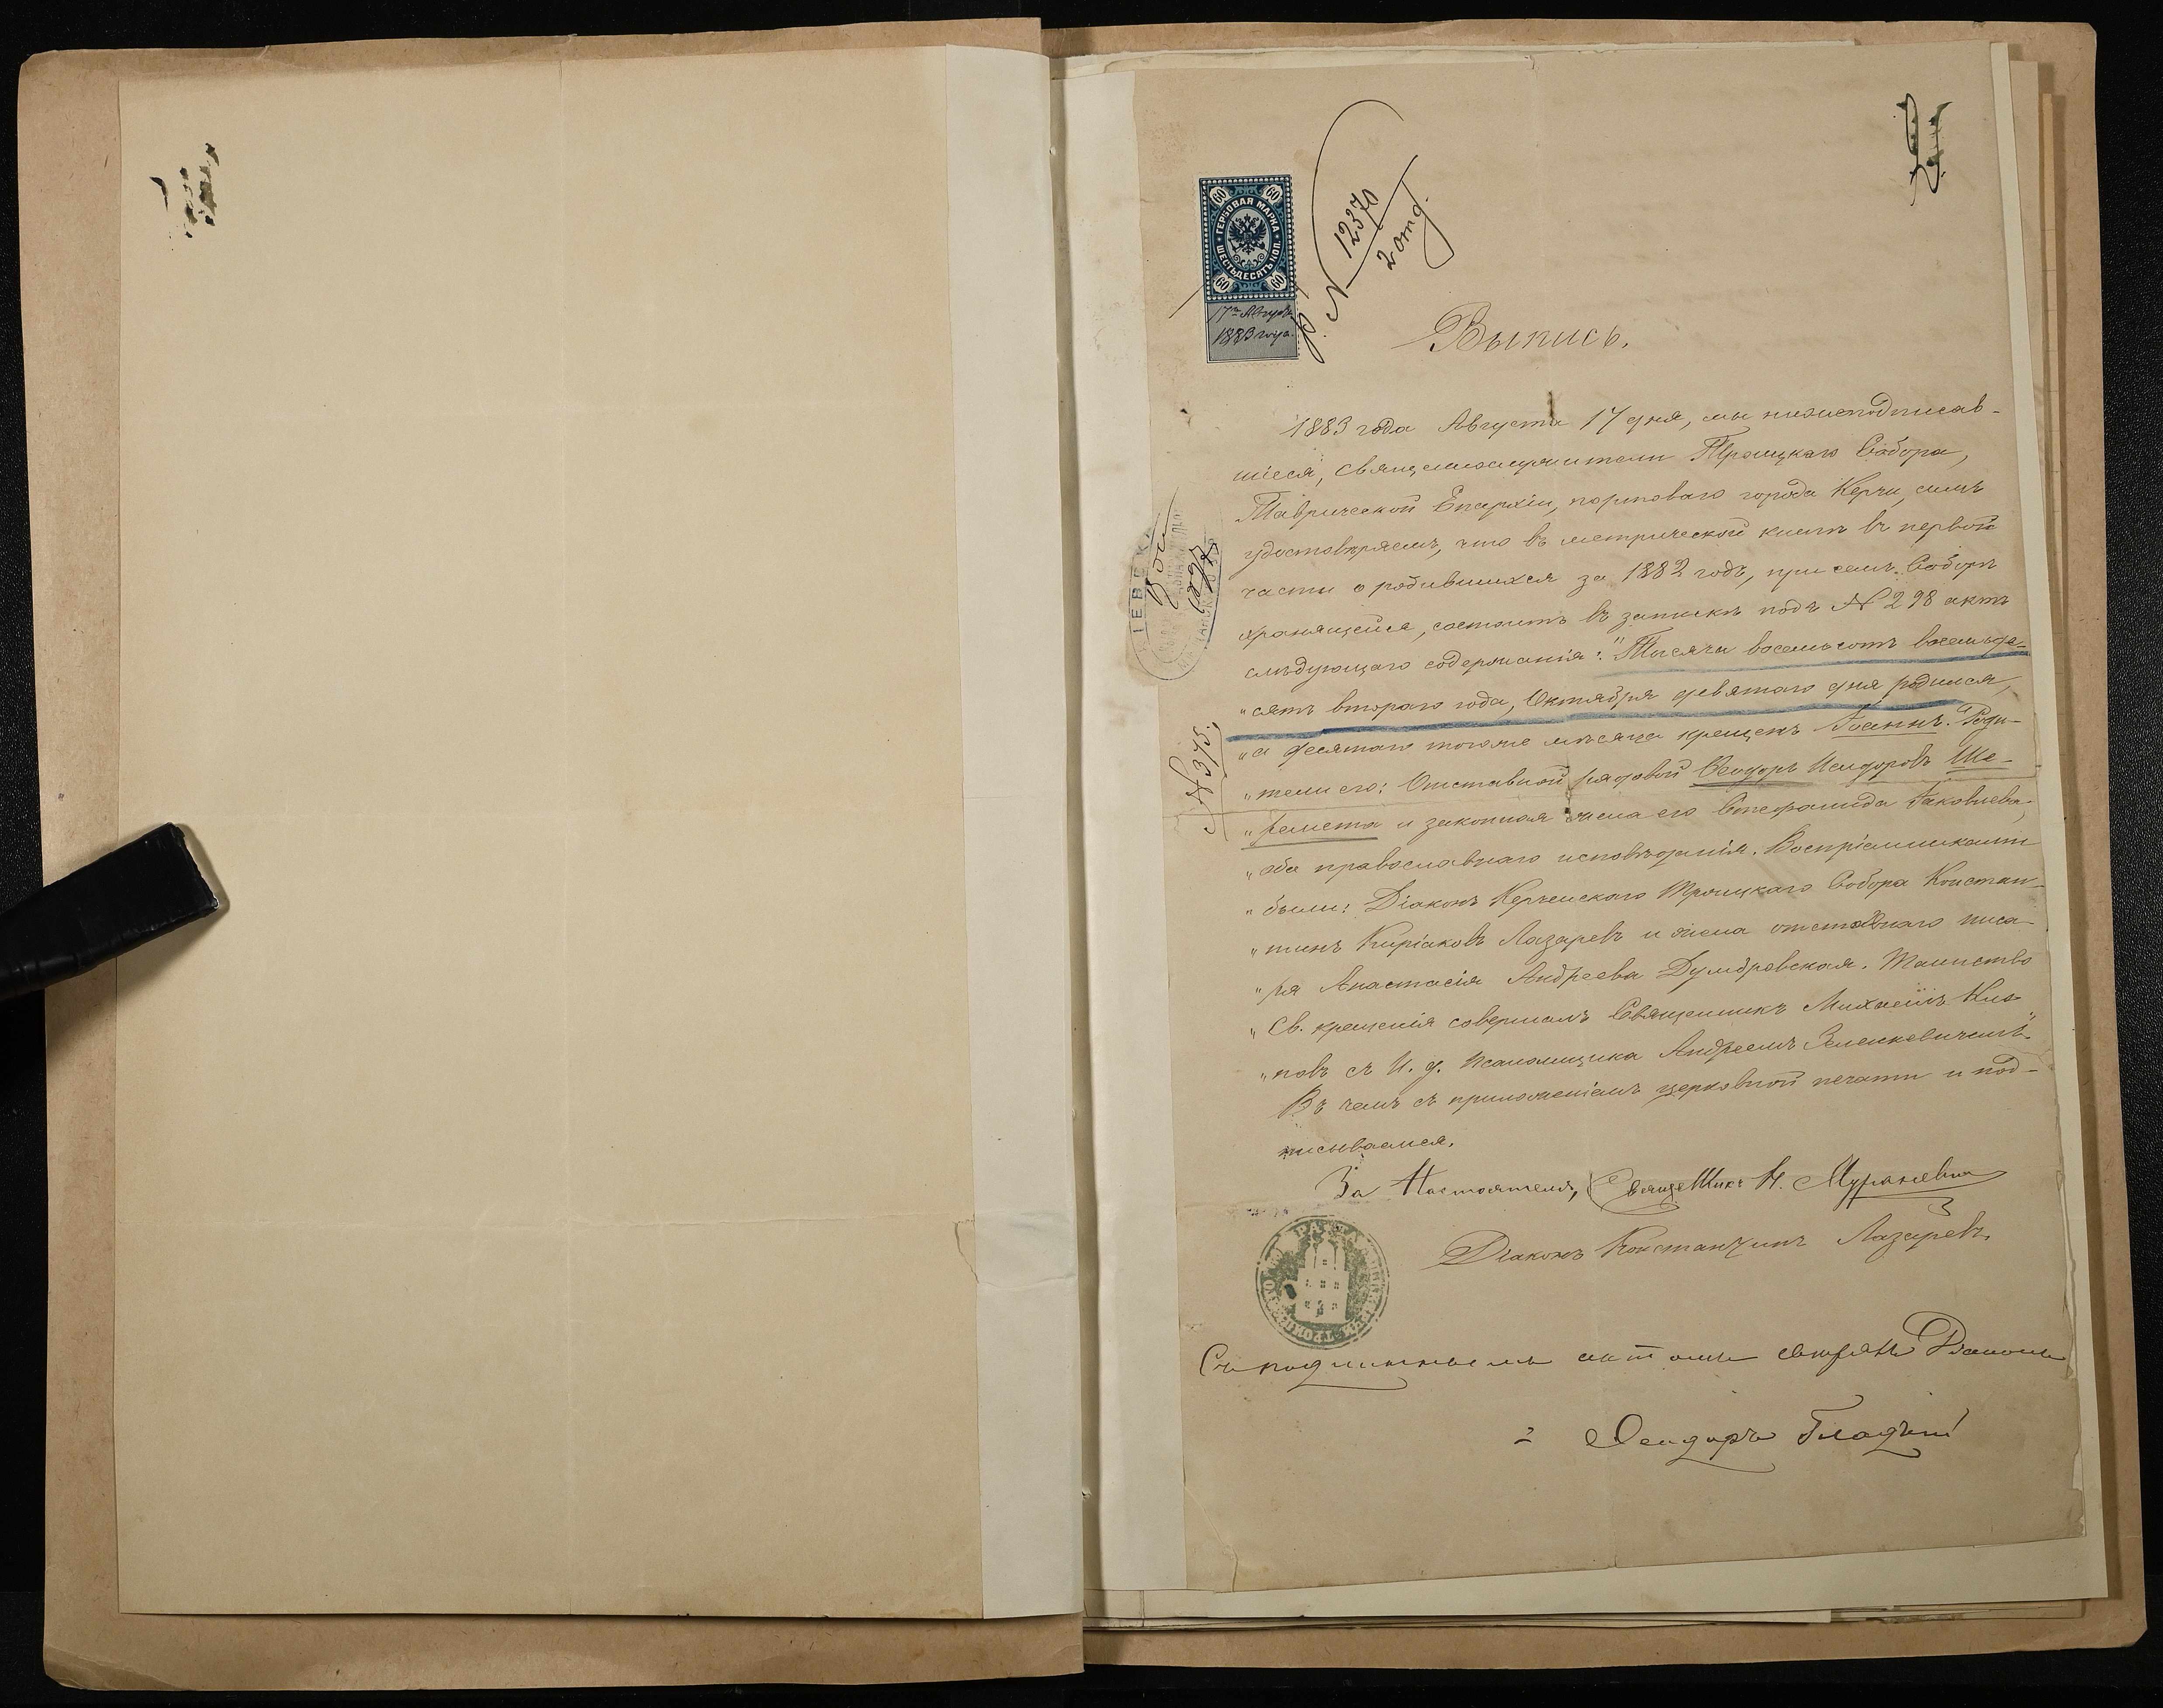 60 60
ГЕРБОВАЯ МАРКА
ШЕСТЬДЕСЯТЬ КОП.
60 60
17го Августа
1883 года.
№ 12370
2 отд.
Выпись.
1883 года Августа 17 дня, мы нижеподписав-
шіеся, священнослужители Троицкаго Собора,
Таврической Епархіи, портоваго города Керчи, симъ
удостовѣряемъ, что въ метрической книгѣ въ первой
части о родившихся за 1882 годъ, при семъ Соборѣ
хранящейся, состоитъ въ запискѣ подъ № 298 актъ
слѣдующаго содержанія: "Тысяча восемьсотъ восемьде-
"сятъ втораго года, Октября девятаго дня родился,
"а десятаго тогоже мѣсяца крещенъ Іоаннъ. Роди-
"тели его: Отставной рядовой Ѳеодоръ Исидоровъ Ше-
"ремета и законная жена его Стефанида Іаковлева,
"оба православнаго исповѣданія. Воспріемниками
"были: Діаконъ Керченскаго Троицкаго Собора Констан-
"тинъ Киріаковъ Лазаревъ и жена отставнаго писа-
"ря Анастасія Андреева Думбровская. Таинство
"Св. крещенія совершалъ Священникъ Михаилъ Кна-
"повъ съ И. д. Псаломщика Андреемъ Зеленкевичемъ".
Въ чемъ съ приложеніемъ церковной печати и под-
писываемся.
За Настоятеля, Священникъ Н.
Діаконъ Константинъ Лазаревъ.
Съ подлиннымъ актомъ свѣрялъ Діаконъ
Ѳеодоръ Гладкій
№ 375.